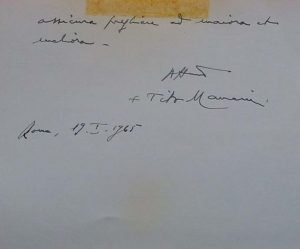 assicura preghiere ad maiora et
meliora -
Aff
+ Tito Mancini
Roma, 19. I. 1965